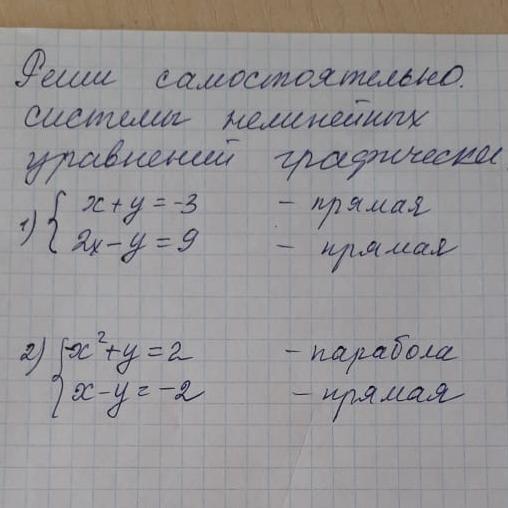 Реши самостоятельно.
системы нелинейных
уравнений графически.
1) { x + y = -3 - прямая
2x - y = 9 - прямая
2) { x² + y = 2 - парабола
x - y = -2 - прямая